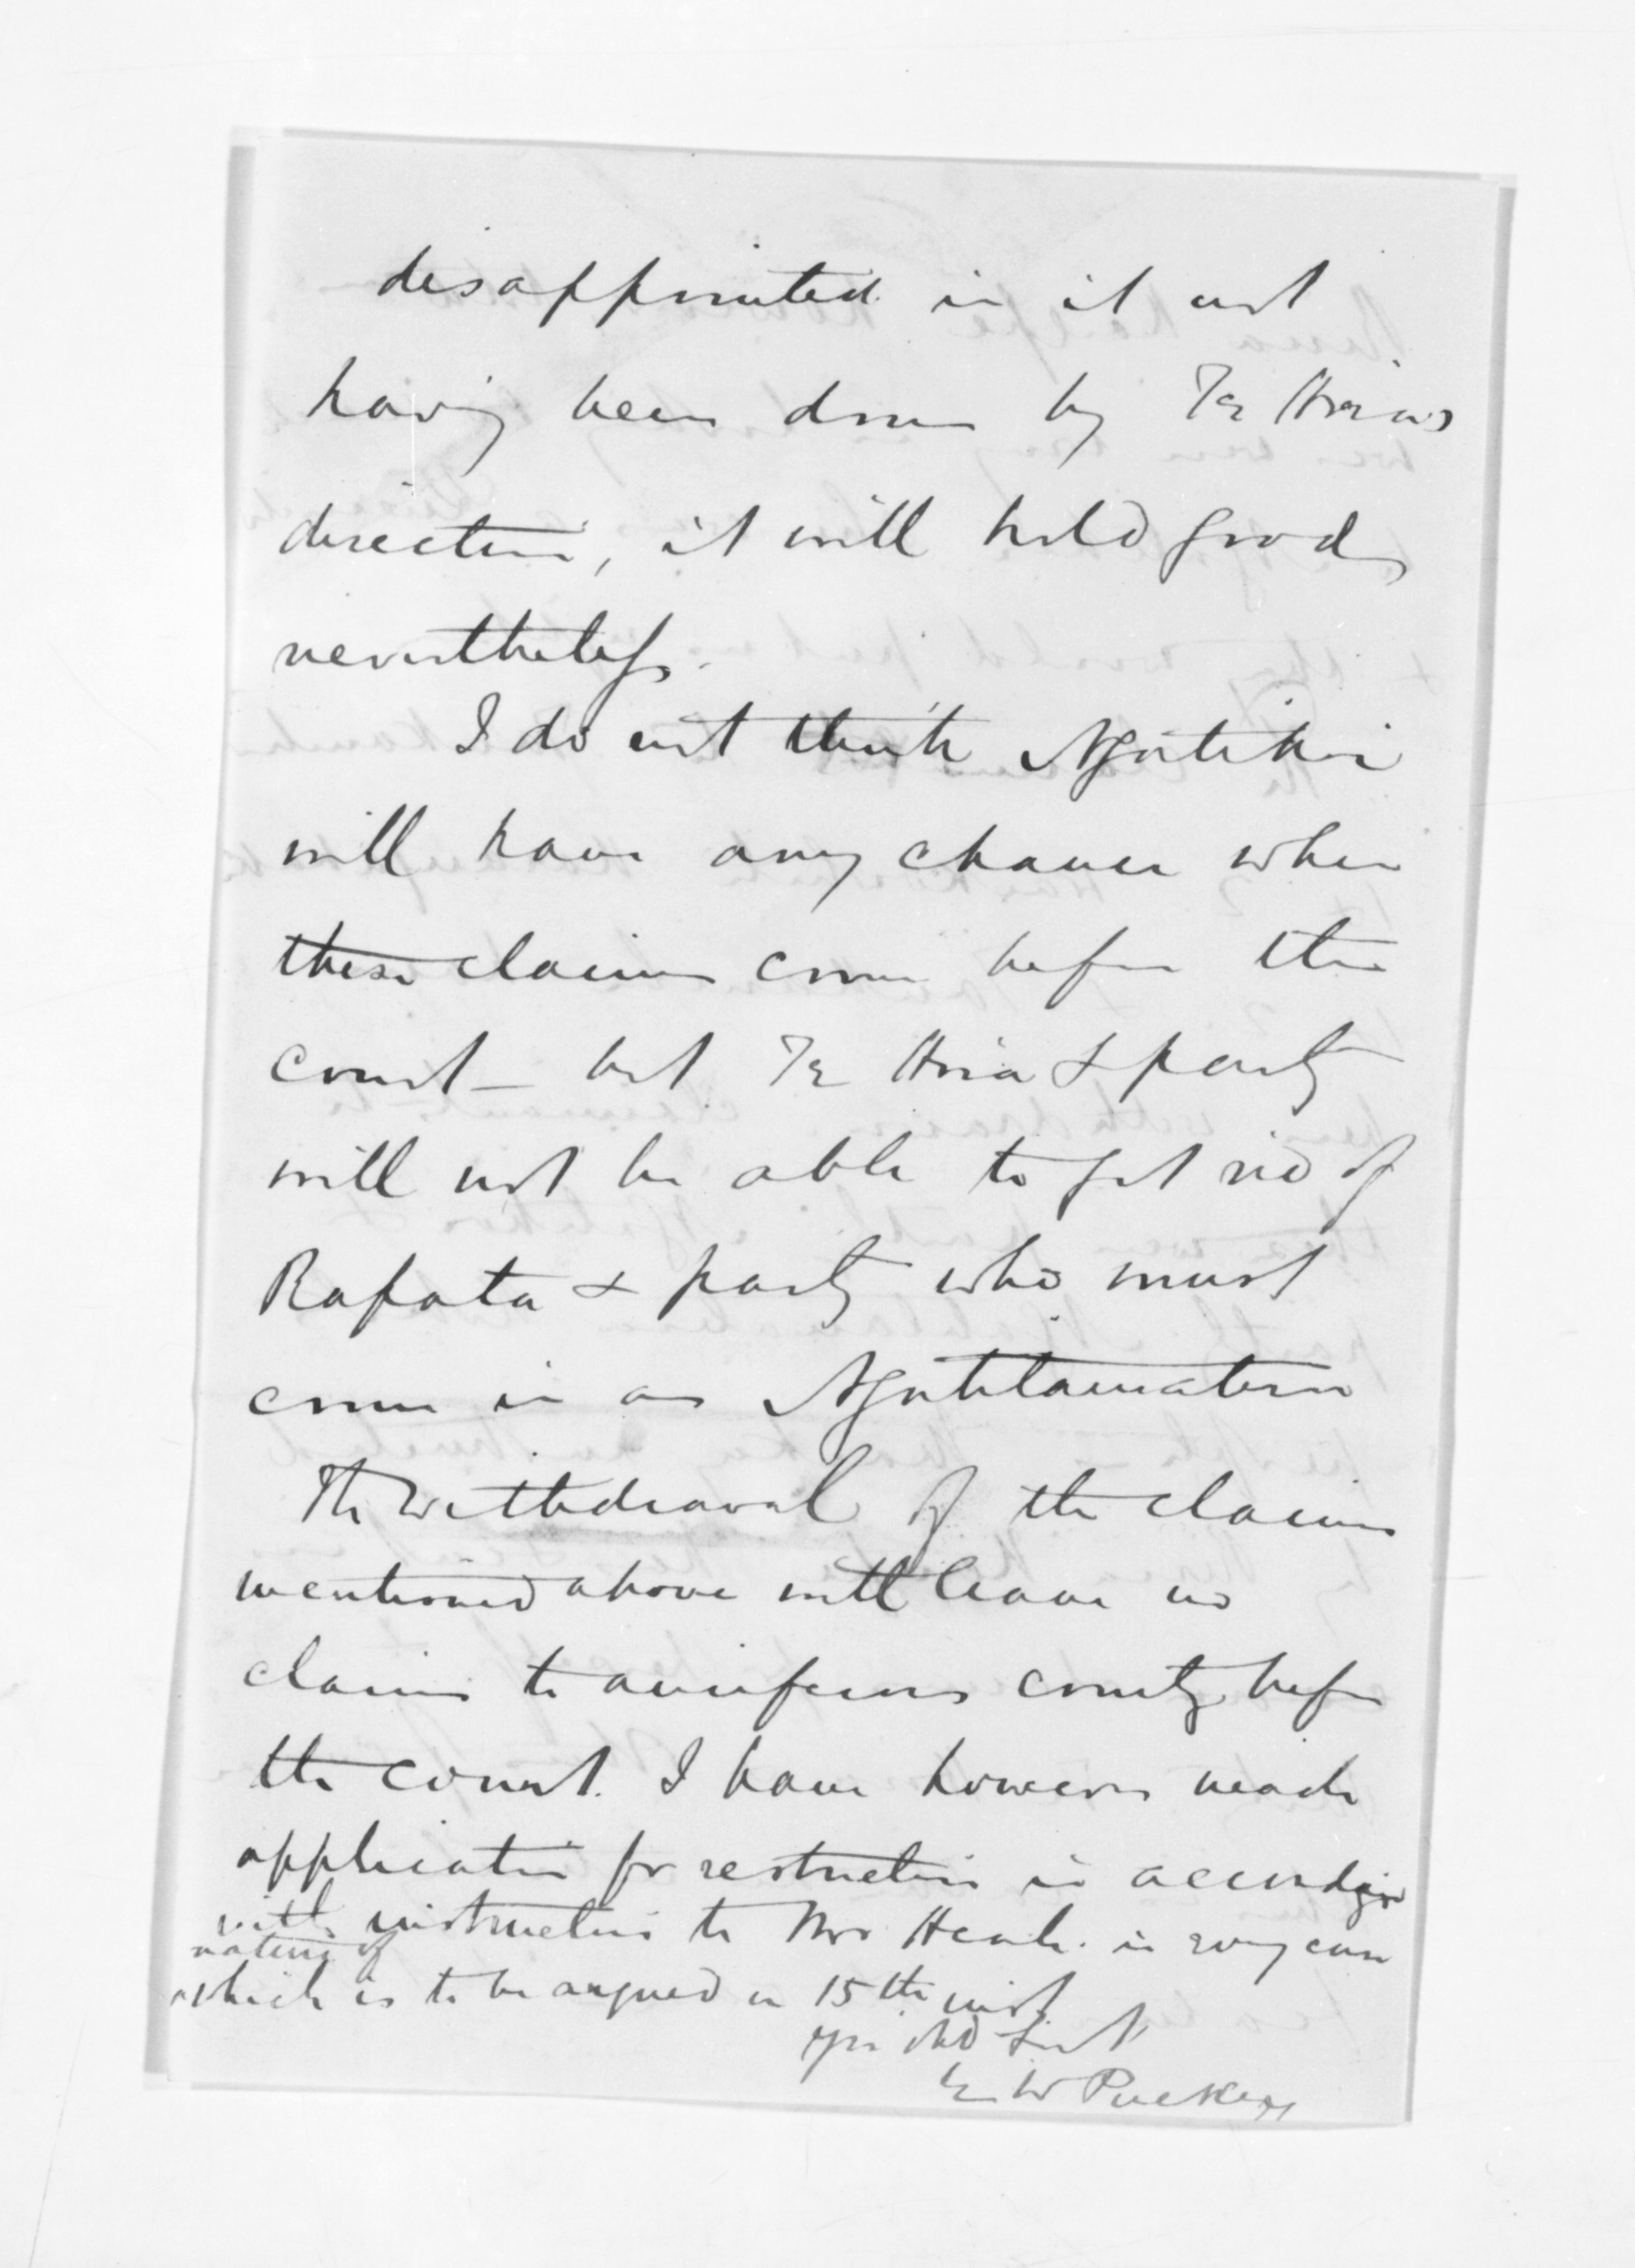 disappointed in it not
having been done by Te Hira's
direction, it will hold good
nevertheless.
I do not think Ngatikoi
will have any chance when
these claims come before the
court — but Te Hira & party
will not be able to get rid of
Ropata & party who must
come in as Ngatitamatera
The withdrawal of the claims
mentioned above will leave no
claims to auriferous country before
the court. I have however made
application for restriction in accordance
with instruction to Mr Heale. in every case
nature of
which is to be argued on 15th inst
Yrs obd Svt
E W Puckey